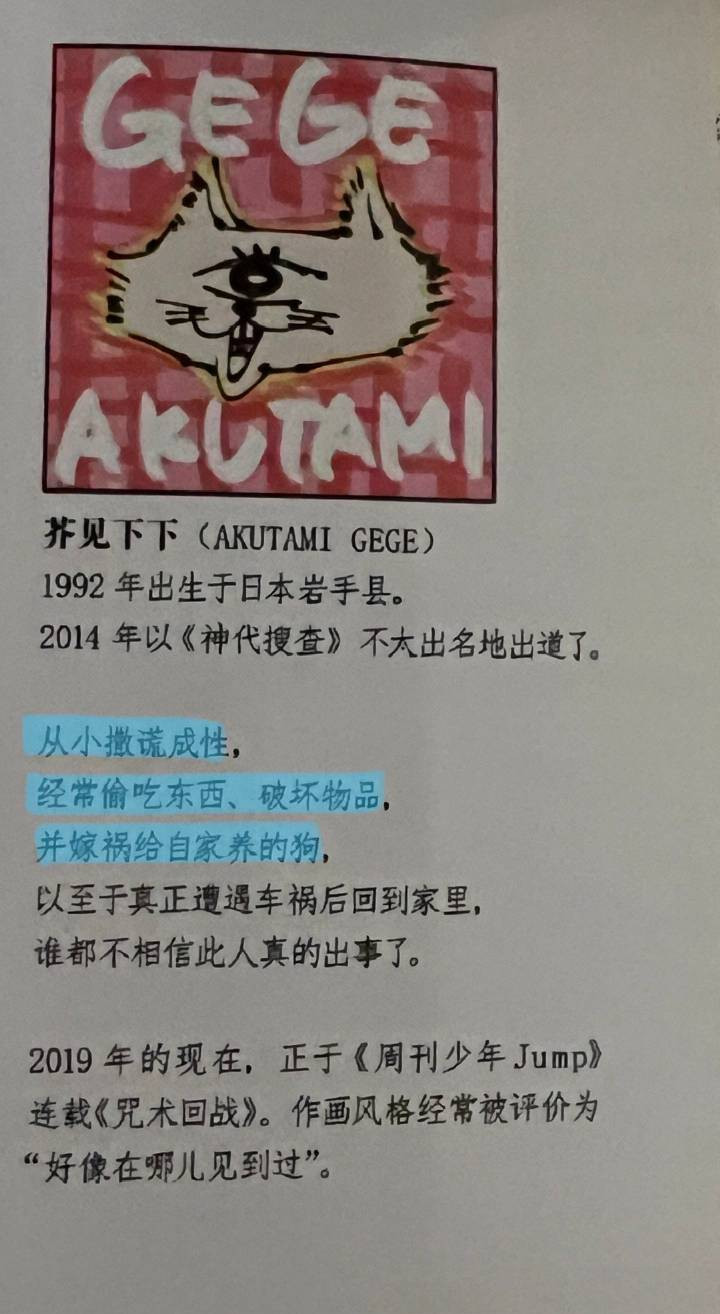 GEGE
AKUTAMI
芥见下下（AKUTAMI GEGE）
1992 年出生于日本岩手县。
2014 年以《神代搜查》不太出名地出道了。
从小撒谎成性，
经常偷吃东西、破坏物品，
并嫁祸给自家养的狗，
以至于真正遭遇车祸后回到家里，
谁都不相信此人真的出事了。
2019 年的现在，正于《周刊少年Jump》
连载《咒术回战》。作画风格经常被评价为
“好像在哪儿见到过”。